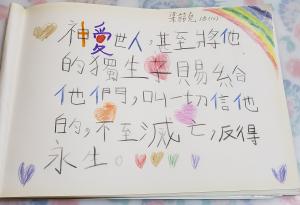 神愛世人,甚至將他
的獨生子賜給
他們,叫一切信他
的,不至滅亡,反得
永生。